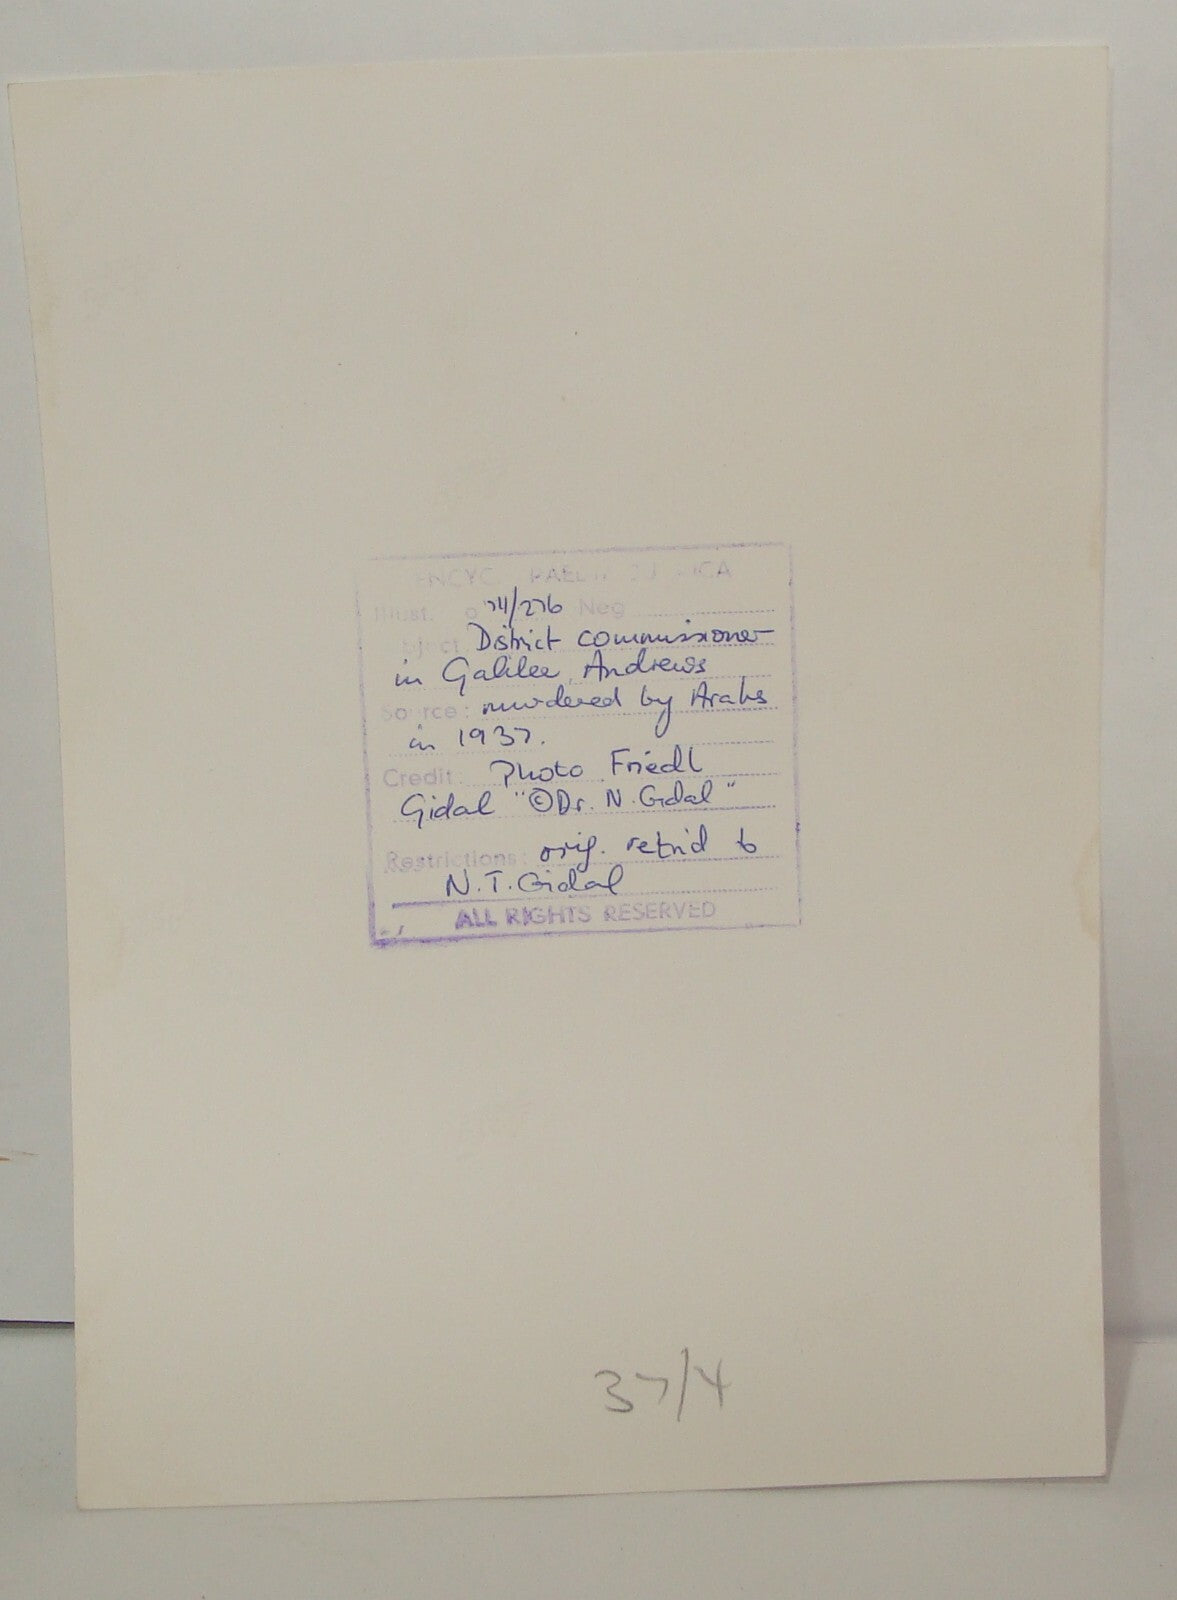 Illust. 74/276 Neg
District commissioner
in Galilee, Andrews
Source: murdered by Arabs
in 1937.
Credit: Photo Friedl
Gidal "©Dr. N. Gidal"
Restrictions: orig. retrnd to
N.T. Gidal
ALL RIGHTS RESERVED
37/4